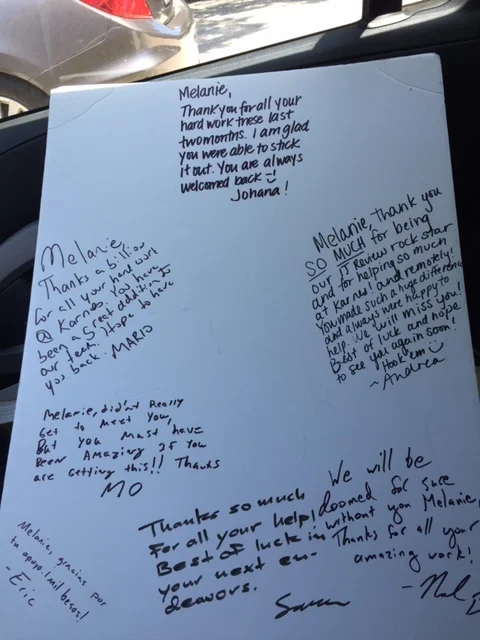 Melanie,
Thank you for all your
hard work these last
two months. I am glad
you were able to stick
it out. You are always
welcomed back :)
Johana!
Melanie,
Thanks a billion
for all your hard work
@ Karnes. You have
been a great addition to
our team. Hope to have
you back. MARIO
Melanie, Thank you
SO MUCH for being
our IT Review rock star
and for helping so much
at Karnes! and remotely!
You made such a huge difference
and always were happy to
help. We will miss you!
Best of luck and hope
to see you again soon!
Hook 'em :)
~Andrea
Melanie, didn't Really
Get to meet you,
But you Must have
Been Amazing if you
are getting this!! Thanks
MO
Melanie, gracias por
tu apoyo! mil besos!
- Eric
Thanks so much
For all your help!
Best of luck in
your next en-
deavors.
We will be
doomed for sure
without you Melanie,
Thanks for all your
amazing work!